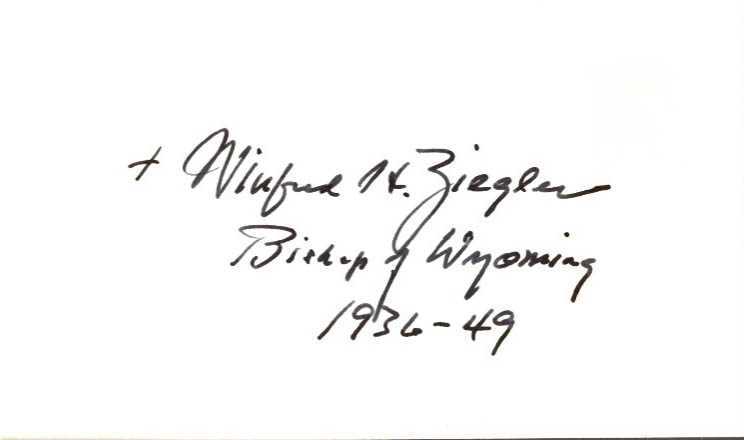 + Winfred H. Ziegler
Bishop of Wyoming
1936-49